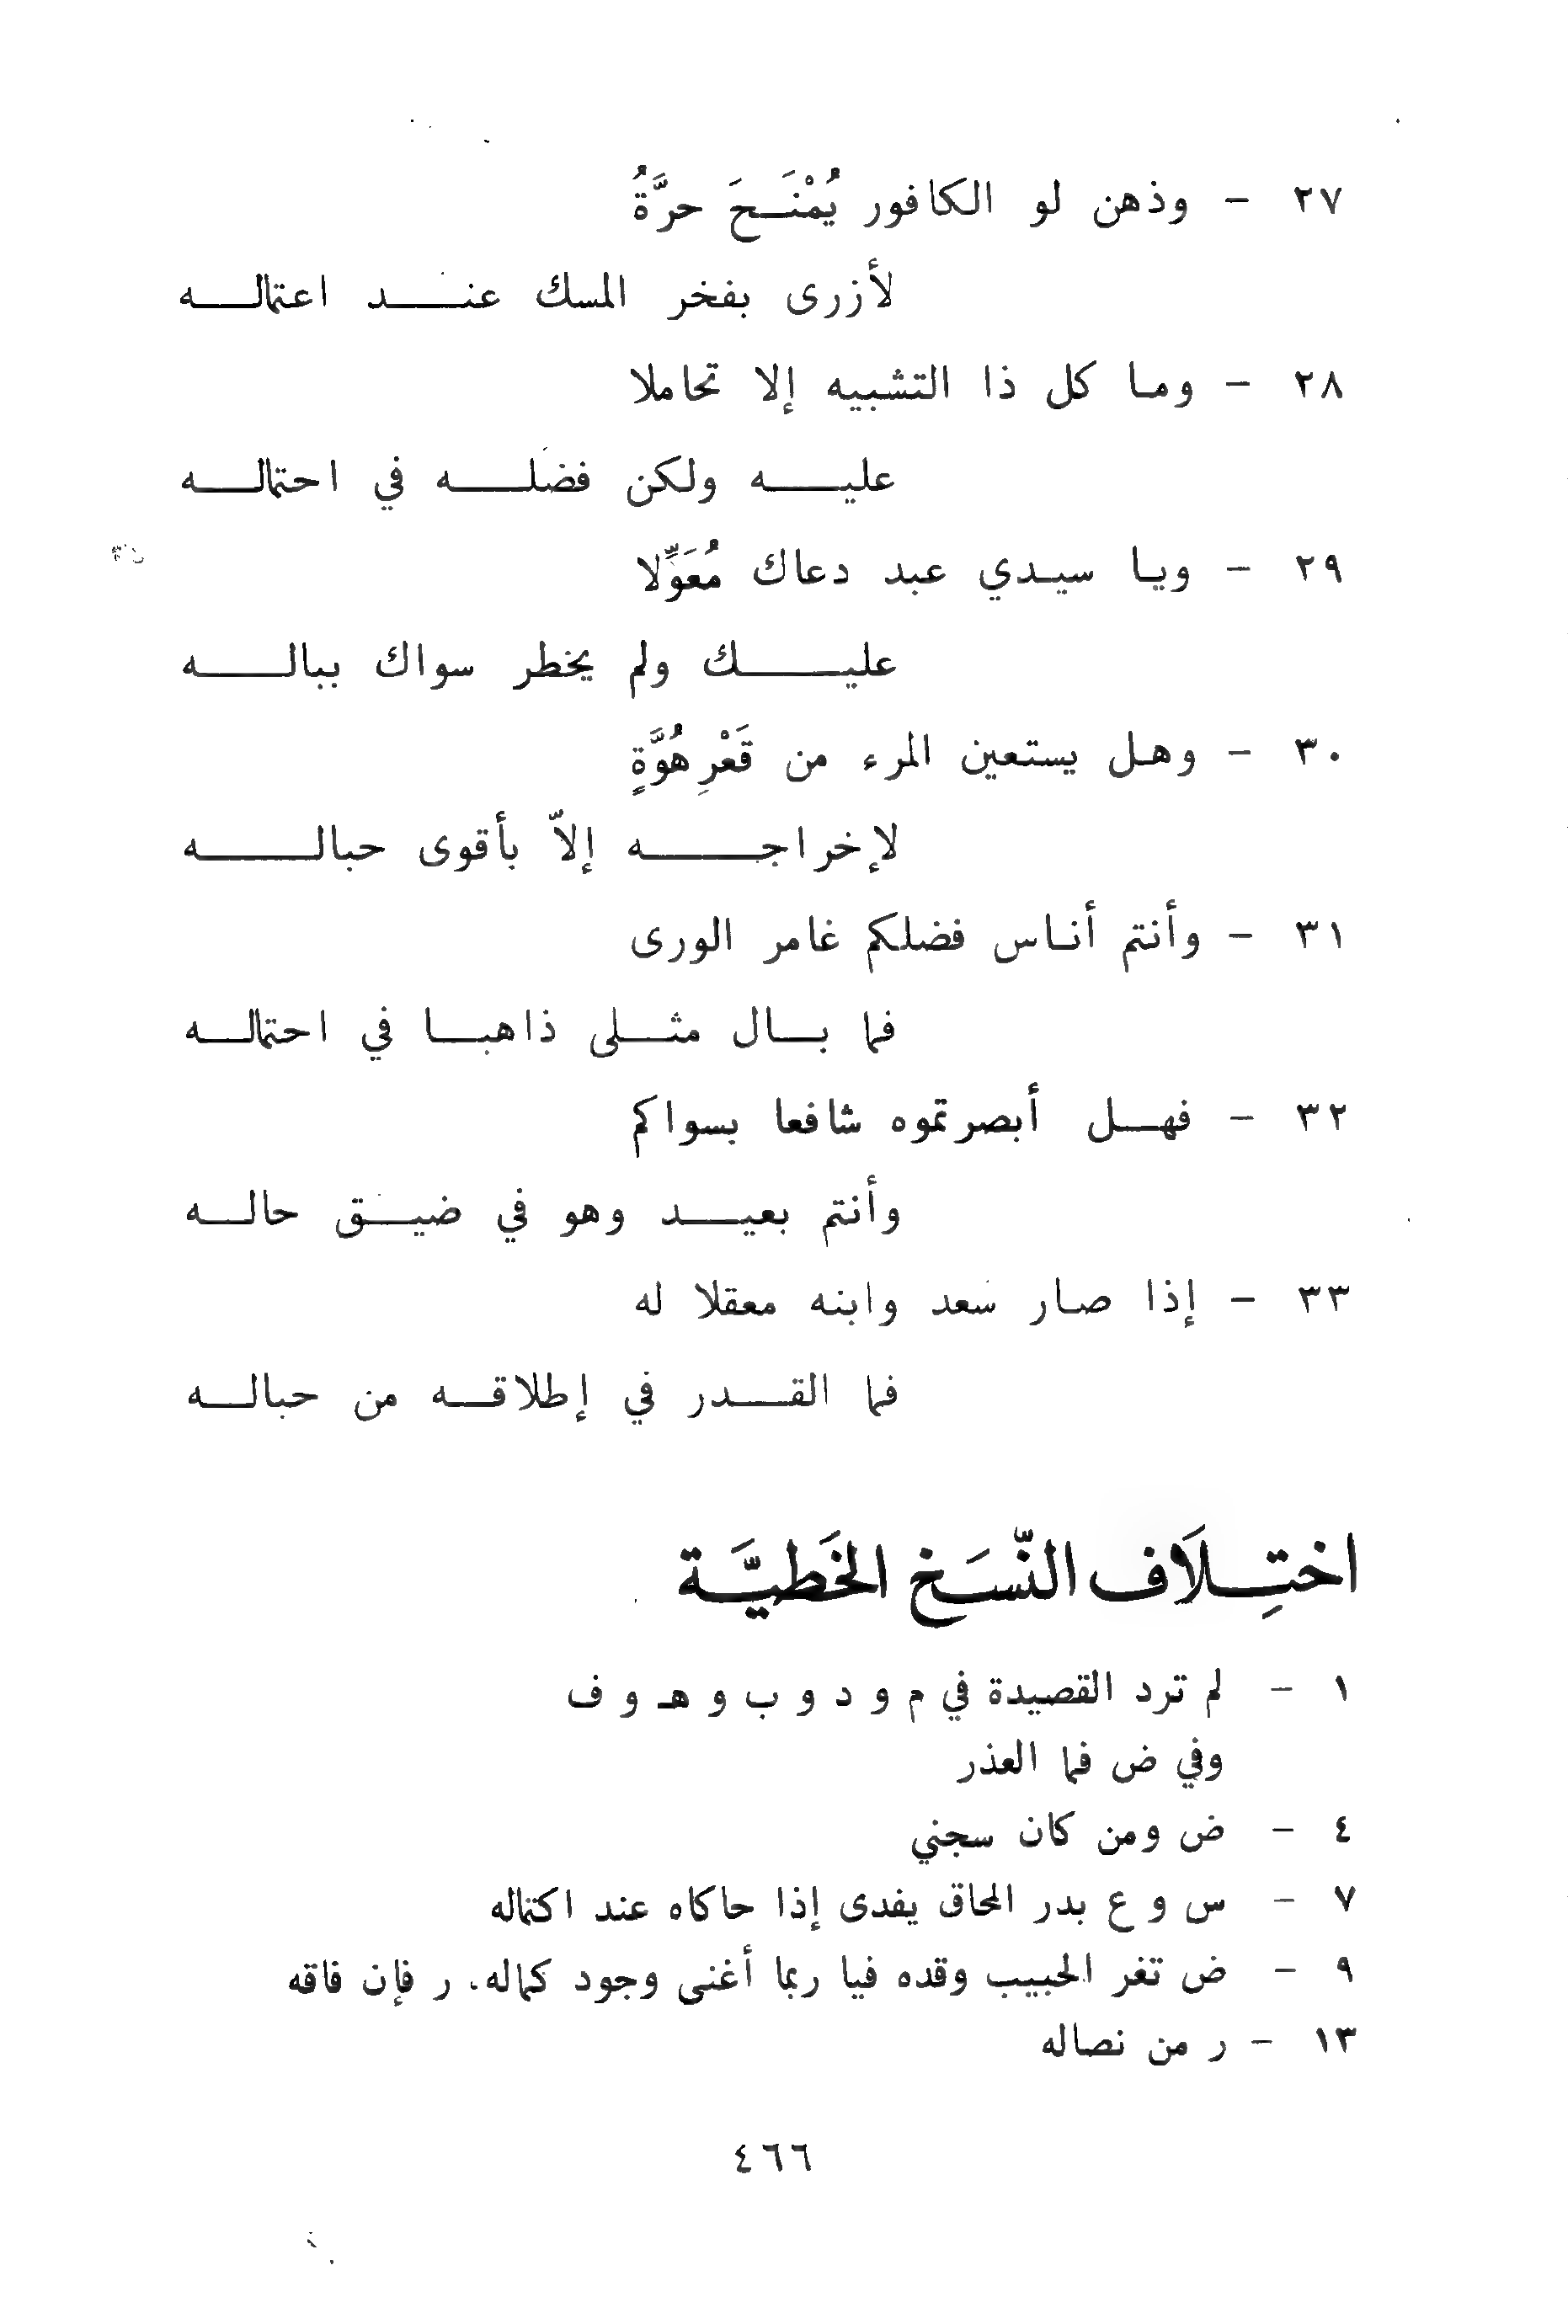 ٢٧ - وذهن لو الكافور يُمْنَـحَ حرَّةُ
لأزرى بفخر المسك عنـد اعتمالـه
٢٨ - وما كل ذا التشبيه إلا تحاملا
عليـه ولكن فضلـه في احتمالـه
٢٩ - ويا سيدي عبد دعاك مُعَوِّلا
عليـك ولم يخطر سواك ببالـه
٣٠ - وهل يستعين المرء من قَعْرِ هُوَّةٍ
لإخراجـه إلاّ بأقوى حبالـه
٣١ - وأنتم أناس فضلكم غامر الورى
فما بـال مثـلى ذاهبـا في احتمالـه
٣٢ - فهـل أبصرتموه شافعا بسواكم
وأنتم بعيـد وهو في ضيـق حالـه
٣٣ - إذا صار سعد وابنه معقلا له
فما القـدر في إطلاقـه من حبالـه
اختِـلَاف النّسَـخ الخَطيَّـة
١ - لم ترد القصيدة في م و د و ب و هـ و ف
وفي ض فما العذر
٤ - ض ومن كان سجني
٧ - س و ع بدر المحاق يفدى إذا حاكاه عند اكتماله
٩ - ض تغر الحبيب وقده فيا ربما أغنى وجود كماله. ر فإن فاقه
١٣ - ر من نصاله
٤٦٦